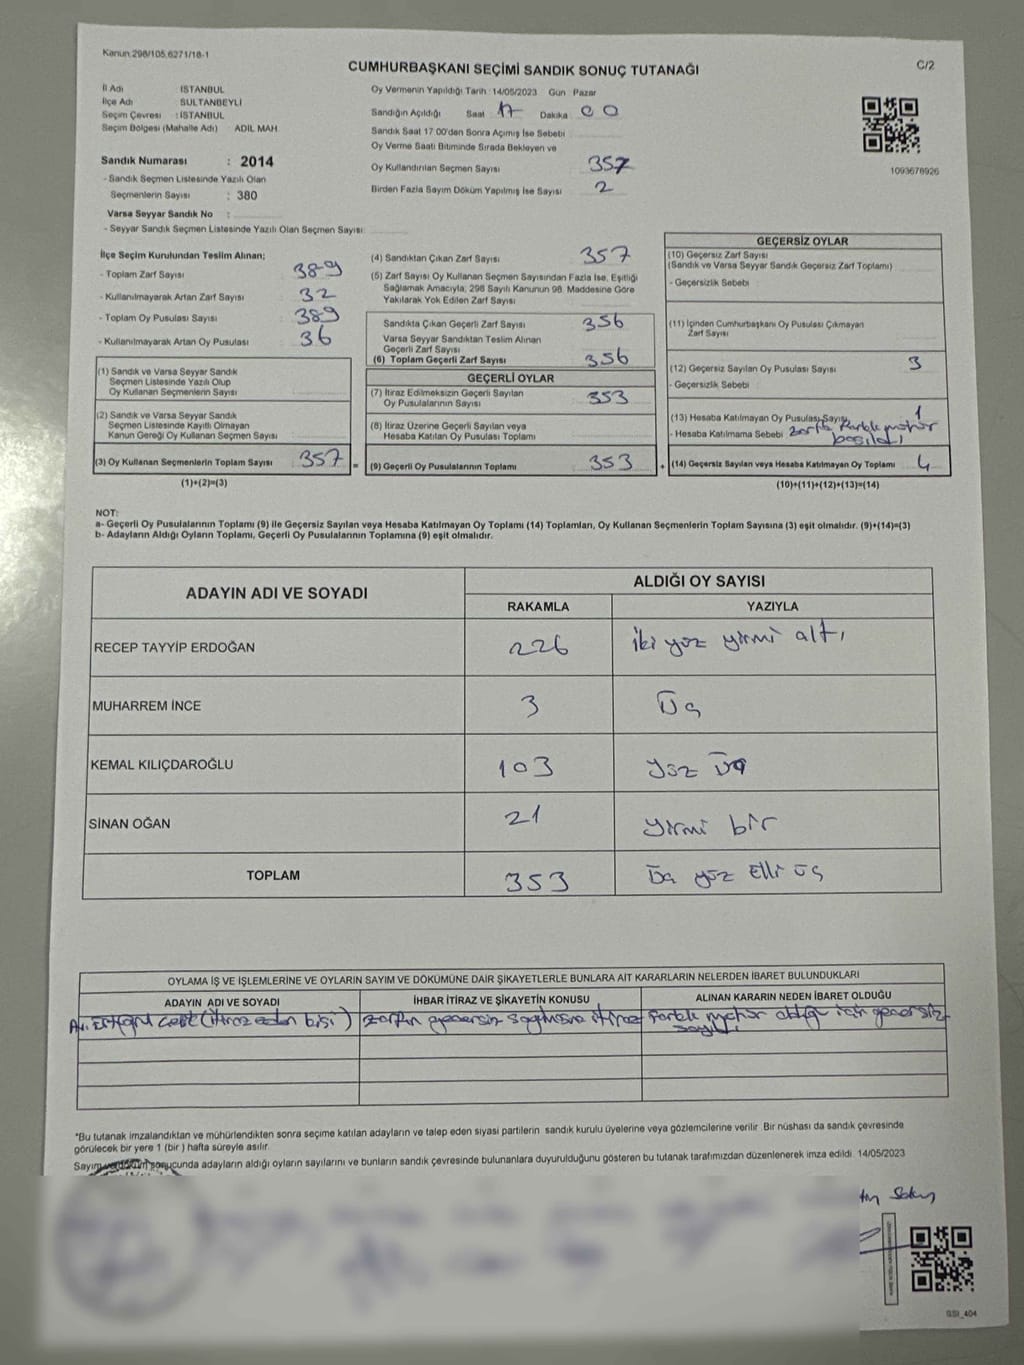 Kanun:298/105,6271/18-1
CUMHURBAŞKANI SEÇİMİ SANDIK SONUÇ TUTANAĞI
C/2
İl Adı İSTANBUL
İlçe Adı SULTANBEYLİ
Seçim Çevresi : İSTANBUL
Seçim Bölgesi (Mahalle Adı) ADİL MAH.
Sandık Numarası : 2014
- Sandık Seçmen Listesinde Yazılı Olan
Seçmenlerin Sayısı : 380
Varsa Seyyar Sandık No :
- Seyyar Sandık Seçmen Listesinde Yazılı Olan Seçmen Sayısı:
Oy Vermenin Yapıldığı Tarih : 14/05/2023 Gün Pazar
Sandığın Açıldığı Saat 17 Dakika 00
Sandık Saat 17.00'den Sonra Açılmış İse Sebebi
Oy Verme Saati Bitiminde Sırada Bekleyen ve
Oy Kullandırılan Seçmen Sayısı 357
Birden Fazla Sayım Döküm Yapılmış İse Sayısı 2
1093676926
İlçe Seçim Kurulundan Teslim Alınan;
- Toplam Zarf Sayısı 389
- Kullanılmayarak Artan Zarf Sayısı 32
- Toplam Oy Pusulası Sayısı 389
- Kullanılmayarak Artan Oy Pusulası 36
(1) Sandık ve Varsa Seyyar Sandık
Seçmen Listesinde Yazılı Olup
Oy Kullanan Seçmenlerin Sayısı
(2) Sandık ve Varsa Seyyar Sandık
Seçmen Listesinde Kayıtlı Olmayan
Kanun Gereği Oy Kullanan Seçmen Sayısı
(3) Oy Kullanan Seçmenlerin Toplam Sayısı 357 =
(1)+(2)=(3)
(4) Sandıktan Çıkan Zarf Sayısı 357
(5) Zarf Sayısı Oy Kullanan Seçmen Sayısından Fazla İse, Eşitliği
Sağlamak Amacıyla, 298 Sayılı Kanunun 98. Maddesine Göre
Yakılarak Yok Edilen Zarf Sayısı
Sandıkta Çıkan Geçerli Zarf Sayısı 356
Varsa Seyyar Sandıktan Teslim Alınan
Geçerli Zarf Sayısı
(6) Toplam Geçerli Zarf Sayısı 356
GEÇERLİ OYLAR
(7) İtiraz Edilmeksizin Geçerli Sayılan
Oy Pusulalarının Sayısı 353
(8) İtiraz Üzerine Geçerli Sayılan veya
Hesaba Katılan Oy Pusulası Toplamı
(9) Geçerli Oy Pusulalarının Toplamı 353 +
GEÇERSİZ OYLAR
(10) Geçersiz Zarf Sayısı
(Sandık ve Varsa Seyyar Sandık Geçersiz Zarf Toplamı)
- Geçersizlik Sebebi
(11) İçinden Cumhurbaşkanı Oy Pusulası Çıkmayan
Zarf Sayısı
(12) Geçersiz Sayılan Oy Pusulası Sayısı 3
- Geçersizlik Sebebi
(13) Hesaba Katılmayan Oy Pusulası Sayısı 1
- Hesaba Katılmama Sebebi zarfta farklı mühür
basıldı
(14) Geçersiz Sayılan veya Hesaba Katılmayan Oy Toplamı 4
(10)+(11)+(12)+(13)=(14)
NOT:
a- Geçerli Oy Pusulalarının Toplamı (9) ile Geçersiz Sayılan veya Hesaba Katılmayan Oy Toplamı (14) Toplamları, Oy Kullanan Seçmenlerin Toplam Sayısına (3) eşit olmalıdır. (9)+(14)=(3)
b- Adayların Aldığı Oyların Toplamı, Geçerli Oy Pusulalarının Toplamına (9) eşit olmalıdır.
ADAYIN ADI VE SOYADI ALDIĞI OY SAYISI
RAKAMLA YAZIYLA
RECEP TAYYİP ERDOĞAN 226 iki yüz yirmi altı
MUHARREM İNCE 3 Üç
KEMAL KILIÇDAROĞLU 103 yüz üç
SİNAN OĞAN 21 yirmi bir
TOPLAM 353 Üç yüz elli üç
OYLAMA İŞ VE İŞLEMLERİNE VE OYLARIN SAYIM VE DÖKÜMÜNE DAİR ŞİKAYETLERLE BUNLARA AİT KARARLARIN NELERDEN İBARET BULUNDUKLARI
ADAYIN ADI VE SOYADI İHBAR İTİRAZ VE ŞİKAYETİN KONUSU ALINAN KARARIN NEDEN İBARET OLDUĞU
Av. (itiraz eden kişi) zarfın geçersiz sayılmasına itiraz farklı mühür olduğu için geçersiz
sayıldı
*Bu tutanak imzalandıktan ve mühürlendikten sonra seçime katılan adayların ve talep eden siyasi partilerin sandık kurulu üyelerine veya gözlemcilerine verilir. Bir nüshası da sandık çevresinde
görülecek bir yere 1 (bir) hafta süreyle asılır.
Sayım ve döküm sonucunda adayların aldığı oyların sayılarını ve bunların sandık çevresinde bulunanlara duyurulduğunu gösteren bu tutanak tarafımızdan düzenlenerek imza edildi. 14/05/2023
GSI_404